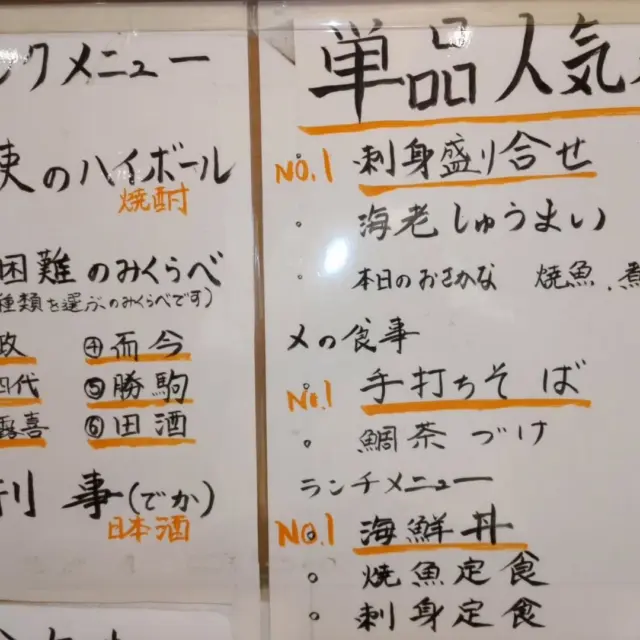 ンクメニュー
のハイボール
焼酎
困難のみくらべ
種類を選ぶのみくらべです)
④而今
代 ⑤勝駒
喜 ⑥田酒
刑事(でか)
日本酒
単品人気
NO.1 刺身盛り合せ
。海老しゅうまい
。本日のおさかな 焼魚.煮
〆の食事
No.1 手打ちそば
。鯛茶づけ
ランチメニュー
NO.1 海鮮丼
。焼魚定食
。刺身定食